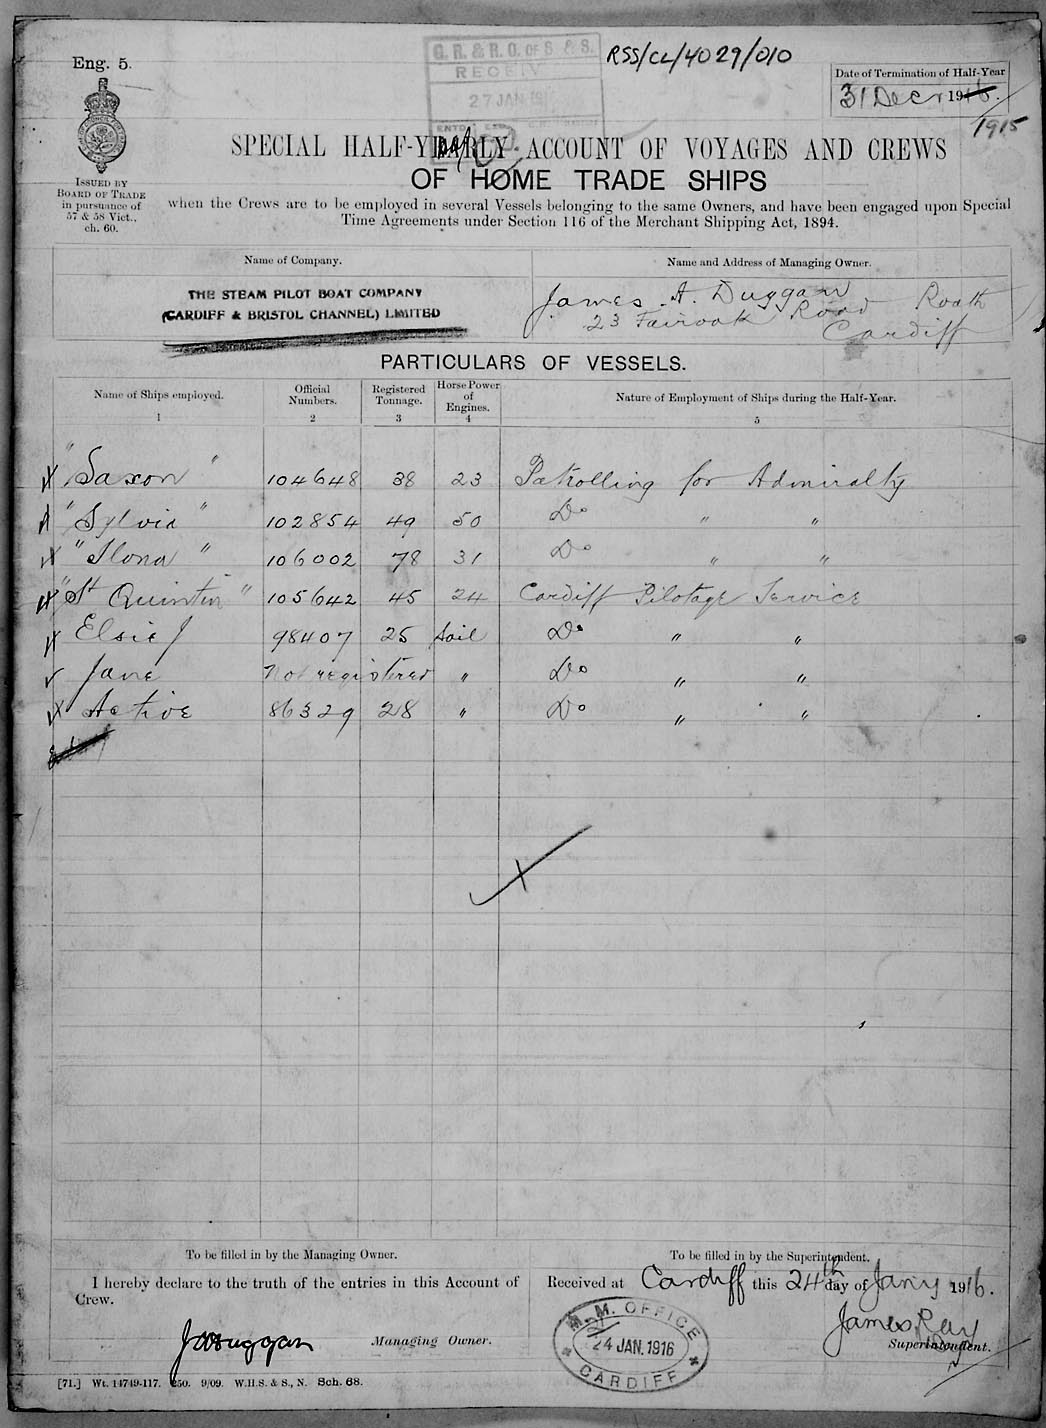 G. R. & R. O. OF S. & S.
RECEIV
27 JAN 191
RSS/CL/4029/010
Eng. 5.
Date of Termination of Half-Year
31 Decr 1916.
1915
ISSUED BY
BOARD OF TRADE
in pursuance of
57 & 58 Vict.,
ch. 60.
SPECIAL HALF-YEARLY ACCOUNT OF VOYAGES AND CREWS
OF HOME TRADE SHIPS
when the Crews are to be employed in several Vessels belonging to the same Owners, and have been engaged upon Special
Time Agreements under Section 116 of the Merchant Shipping Act, 1894.
Name of Company.
Name and Address of Managing Owner.
THE STEAM PILOT BOAT COMPANY
(CARDIFF & BRISTOL CHANNEL) LIMITED
James A. Duggan
23 Fairoak Road Roath
Cardiff
PARTICULARS OF VESSELS.
Name of Ships employed. Official Numbers. Registered Tonnage. Horse Power of Engines. Nature of Employment of Ships during the Half-Year.
1 2 3 4 5
"Saxon" 104648 38 23 Patrolling for Admiralty
"Sylvia" 102854 49 50 Do " "
"Ilona" 106002 78 31 Do " "
"St Quintin" 105642 45 24 Cardiff Pilotage Service
Elsie J 98407 25 Sail Do " "
Jane Not registered " Do " "
Active 86329 28 " Do " "
To be filled in by the Managing Owner.
To be filled in by the Superintendent.
I hereby declare to the truth of the entries in this Account of
Crew.
Received at Cardiff this 24th day of Jany 1916.
JADuggan Managing Owner.
James Ray
Superintendent.
M.M. OFFICE
24 JAN. 1916
CARDIFF
[71.] Wt. 14749-117. 250. 9/09. W.H.S. & S., N. Sch. 68.